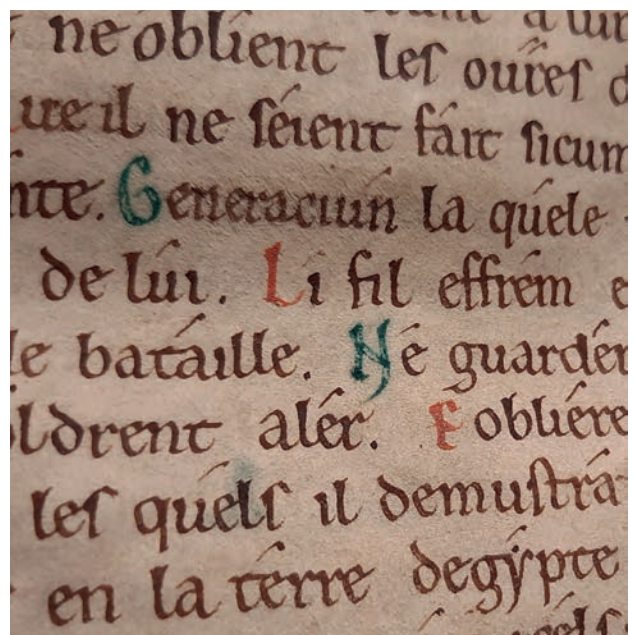 ne oblient les oures
il ne séient fait sicum
Generaciun la quele
de lui. Li fil effrem
bataille. Ne guardér
alér. E obliére
les quels il demustra
en la térre degypte